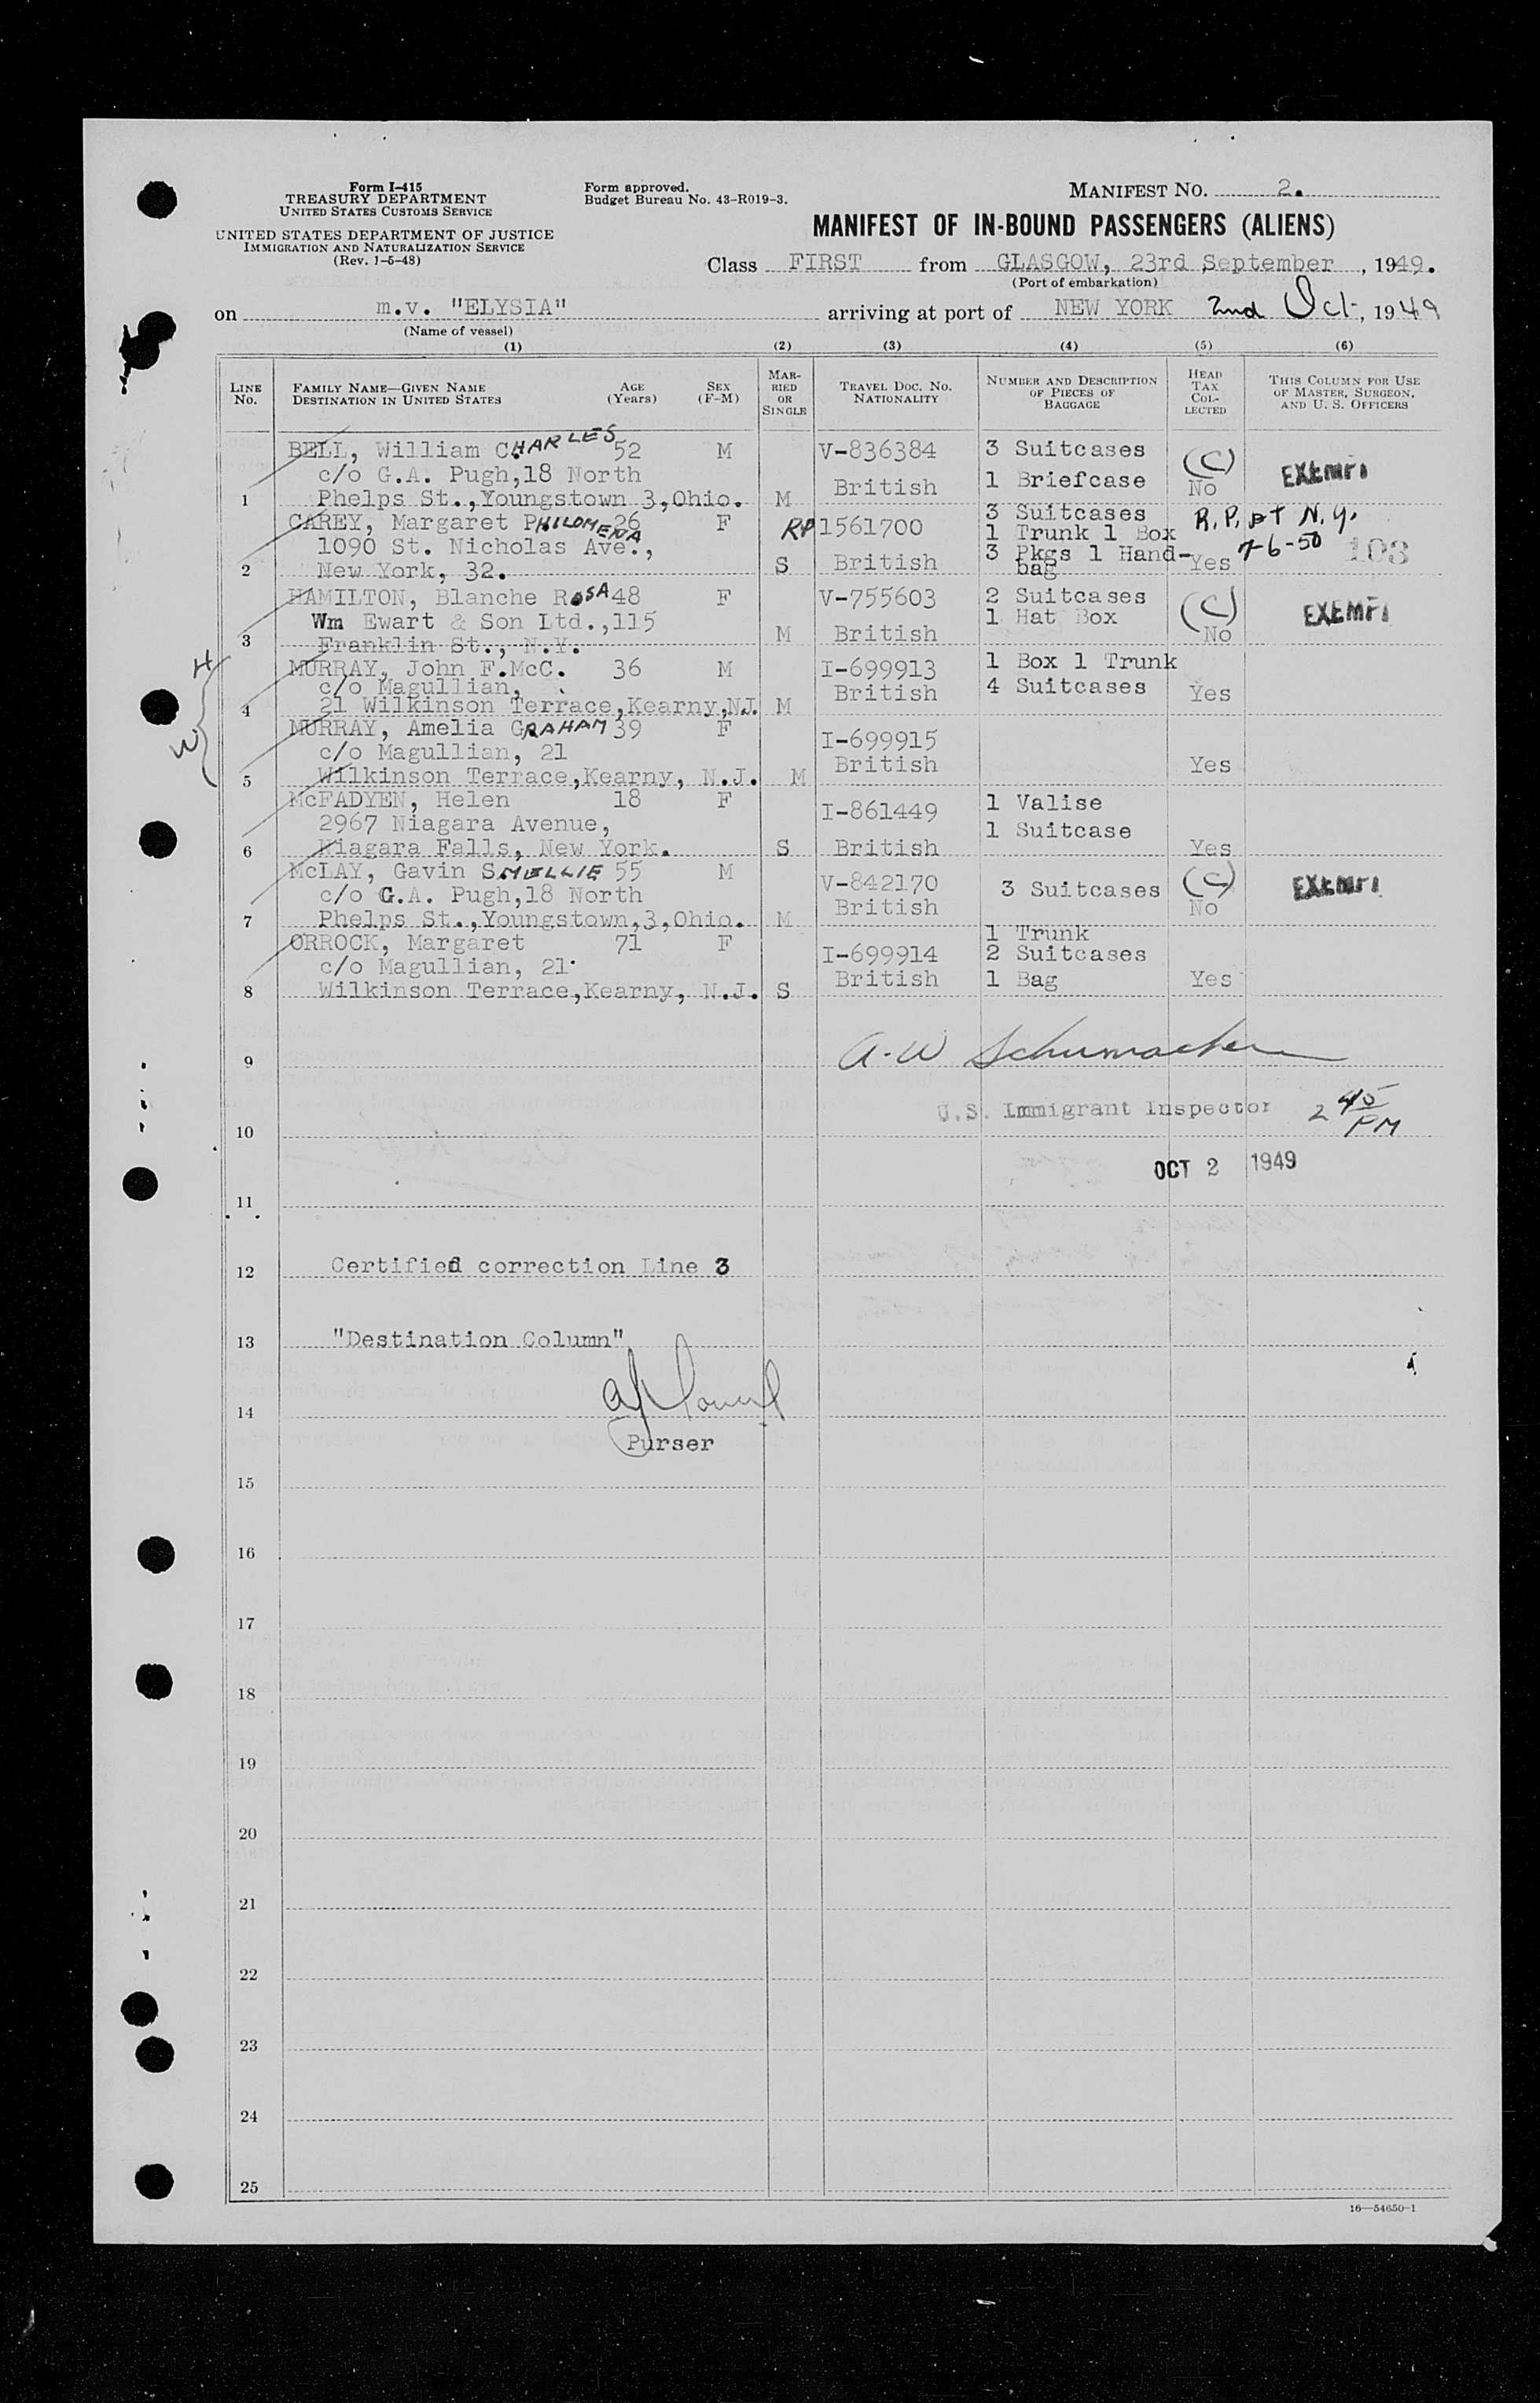 Form I-415
TREASURY DEPARTMENT
UNITED STATES CUSTOMS SERVICE
UNITED STATES DEPARTMENT OF JUSTICE
IMMIGRATION AND NATURALIZATION SERVICE
(Rev. 1-5-48)
Form approved.
Budget Bureau No. 43-R019-3.
MANIFEST NO. 2.
MANIFEST OF IN-BOUND PASSENGERS (ALIENS)
Class FIRST from GLASGOW, 23rd September, 1949.
(Port of embarkation)
on m.v. "ELYSIA" arriving at port of NEW YORK 2nd Oct, 1949
(Name of vessel)
(1) (2) (3) (4) (5) (6)
LINE No.
FAMILY NAME—GIVEN NAME
DESTINATION IN UNITED STATES
AGE (Years)
SEX (F-M)
MARRIED OR SINGLE
TRAVEL DOC. NO.
NATIONALITY
NUMBER AND DESCRIPTION OF PIECES OF BAGGAGE
HEAD TAX COLLECTED
THIS COLUMN FOR USE OF MASTER, SURGEON, AND U. S. OFFICERS
BELL, William CHARLES 52 M V-836384 3 Suitcases (C) EXEMPT
c/o G.A. Pugh,18 North British 1 Briefcase No
1 Phelps St.,Youngstown 3,Ohio. M
CAREY, Margaret PHILOMENA 26 F RP 1561700 3 Suitcases R.P. at N.Y.
1090 St. Nicholas Ave., 1 Trunk 1 Box 7-6-50 103
2 New York, 32. S British 3 Pkgs 1 Hand-bag Yes
HAMILTON, Blanche ROSA 48 F V-755603 2 Suitcases (C) EXEMPT
Wm Ewart & Son Ltd.,115 1 Hat Box
3 Franklin St., N.Y. M British No
MURRAY, John F.McC. 36 M I-699913 1 Box 1 Trunk
c/o Magullian, British 4 Suitcases Yes
4 21 Wilkinson Terrace,Kearny,NJ. M
MURRAY, Amelia GRAHAM 39 F I-699915
c/o Magullian, 21 British Yes
5 Wilkinson Terrace,Kearny, N.J. M
McFADYEN, Helen 18 F I-861449 1 Valise
2967 Niagara Avenue, 1 Suitcase
6 Niagara Falls, New York. S British Yes
McLAY, Gavin SMELLIE 55 M V-842170 3 Suitcases (C) EXEMPT
c/o G.A. Pugh,18 North British No
7 Phelps St.,Youngstown,3,Ohio. M
ORROCK, Margaret 71 F I-699914 1 Trunk
c/o Magullian, 21 2 Suitcases
8 Wilkinson Terrace,Kearny, N.J. S British 1 Bag Yes
H
W
9 A. W Schumacher
U.S. Immigrant Inspector 2 45 PM
10
OCT 2 1949
11
12 Certified correction Line 3
13 "Destination Column"
14
Purser
15
16
17
18
19
20
21
22
23
24
25
16—54650-1